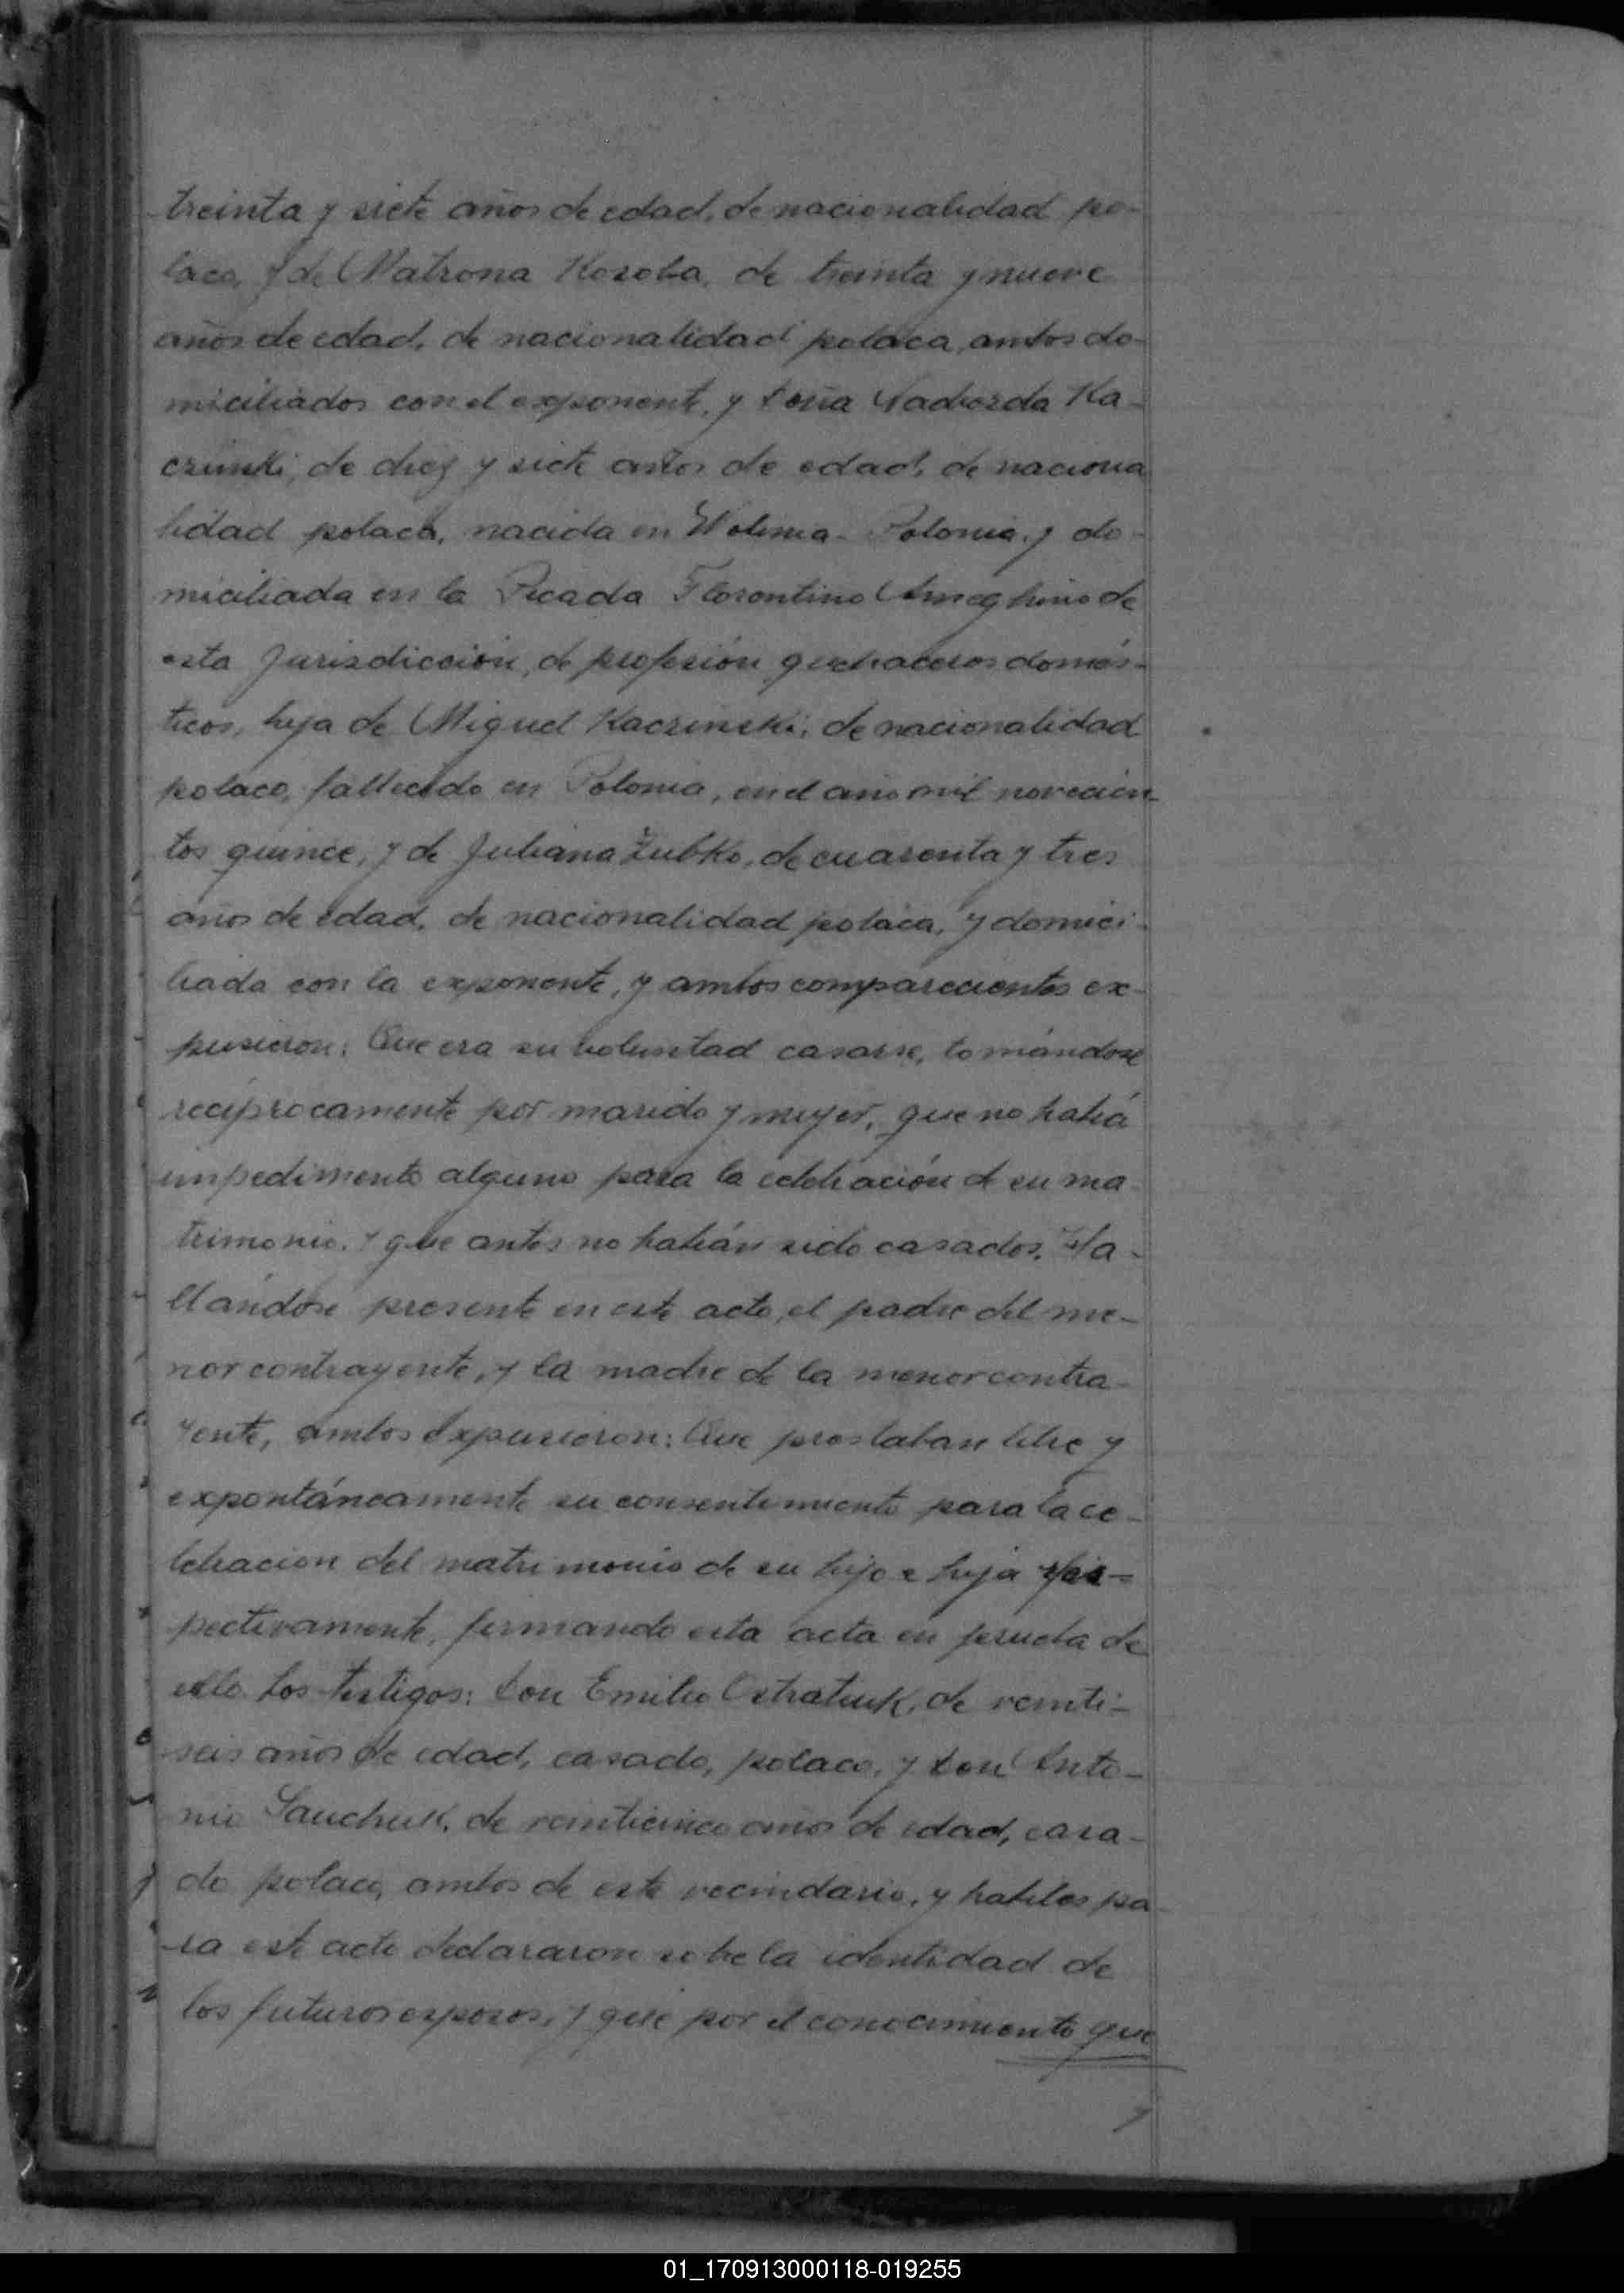 treinta y siete años de edad, de nacionalidad po-
laco, y de Matrona Kozoba, de treinta y nueve
años de edad, de nacionalidad polaca, ambos do-
miciliados con el exponente, y doña Nadiezda Ka-
czinski, de diez y siete años de edad, de naciona
lidad polaca, nacida en Wolinia - Polonia, y do-
miciliada en la Picada Florentino Ameghino de
esta Jurisdicción, de profesión quehaceres domés-
ticos, hija de Miguel Kaczinski, de nacionalidad
polaco, fallecido en Polonia, en el año mil novecien-
tos quince, y de Juliana Zubko, de cuarenta y tres
años de edad, de nacionalidad polaca, y domici-
liada con la exponente, y ambos comparecientes ex-
pusieron: Que era su voluntad casarse, tomándose
recíprocamente por marido y mujer, que no había
impedimento alguno para la celebración de su ma-
trimonio, y que antes no habían sido casados. Ha-
llándose presente en este acto, el padre del me-
nor contrayente, y la madre de la menor contra-
yente, ambos expusieron: Que prestaban libre y
expontáneamente su consentimiento para la ce-
lebracion del matrimonio de su hijo e hija res-
pectivamente, firmando esta acta en prueba de
ello. Los testigos: don Emilio Ostratiuk, de veinti-
seis años de edad, casado, polaco, y don Anto-
nio Sauchuk, de veinticinco años de edad, casa-
do polaco, ambos de este vecindario, y habiles pa-
ra este acto declararon sobre la identidad de
los futuros esposos, y que por el conocimiento que
01_170913000118-019255